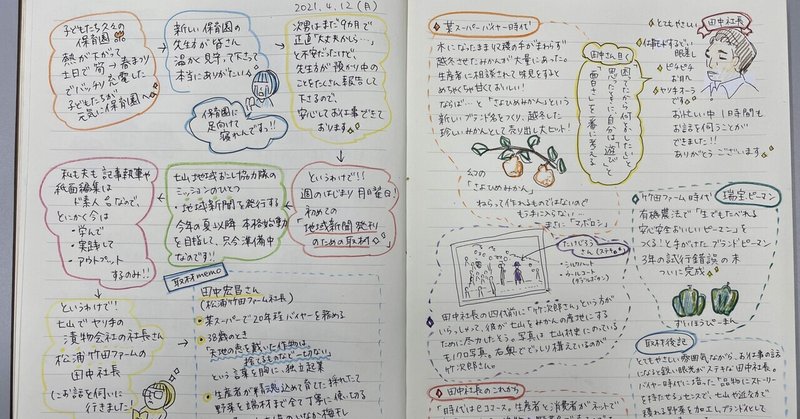 2021.4.12(月)
子どもたち久々の
保育園
熱が下がって
土日で筍っ春まつり
でバッチリ充電した
子どもたちが
元気に保育園へ
新しい保育園の
先生方が皆さん
温かく見守って下さって
本当にありがたいる
保育園に
足向けて
寝れんです!!
次男はまだ9カ月で
正直「大丈夫かしら…」
と不安だったけど、
先生方が預かり中の
ことをたくさん報告して
下さるので、
安心してお仕事できて
おります
というわけで!!
週のはじまり月曜日!
初めての
「地域新聞発刊
のための取材」
七山地域おこし協力隊の
ミッションのひとつ
・地域新聞を発行する
今年の夏以降本格始動
を目指して、只今準備中
なのです!!
私も夫も記事執筆や
紙面編集は
ド素人なので、
とにかく今は
・学んで
・実践して
・アウトプット
するのみ!!
というわけで!
七山でヤリ手の
漬物会社の社長さん
松浦竹田ファームの
田中社長
にお話を伺いに
行きました!
取材memo
田中宏昌さん
(松浦竹田ファーム社長)
某スーパーで20年程バイヤーを務める
38歳のとき
「天地の恵を戴いた作物は、
捨てるものなど一切ない」
という言葉を胸に独立起業
生産者が精魂込めて育て、採れたて
野菜を端材まで全て丁寧に使い切る
某スーパーバイヤー時代
木になったまま収穫の手がまわらず
越冬させたみかんが大量にあった。
生産者に相談されて味見をすると
めちゃくちゃ甘くておいしい!
ならば…と「さよひめみかん」という
新しいブランド名をつくり、越冬した
珍しいみかんとして売り出し大ヒット!
幻の
「さよひめみかん」
ねらって作れるものではないので
もう手に入らない…
まさに「マボロシ」
田中さん曰く
困ったから何とかしたいと
思ったときに自分は「遊び」と
「面白さ」を一番に考える
田中社長
とてもやさしい
眼差し
ピチピチ
お肌
ヤリ手オーラ
です
お忙しい中1時間も
お話を伺うことが
できました!!
ありがとうございます
竹田ファーム時代
瑞宝ピーマン
有機農法で「生でもたべれる
安心安全おいしいピーマン」を
つくる!と手がけたブランドピーマン
3年の試行錯誤の末
ついに完成
ずいほうぴーまん
たけじろうさん(ステキ)
・シルクハット
・ウールコート
田中社長の四代前に「竹次郎さん」という方が
いらっしゃって、彼が七山をみかんの産地にする
ために尽力したそう。写真は七山村史にのっている
モノクロ写真。右奥でどっしり構えているのが
竹次郎さん。
田中社長のこれから
時代はECコース。生産者と消費者がネットで
取材後記
とてもやさしい雰囲気ながら、お仕事の話に
なると鋭い眼光がステキな田中社長。
バイヤー時代に培った「品物にストーリー
を持たせる」センスで、七山や近辺で
穫れる野菜を加工しブランドとして